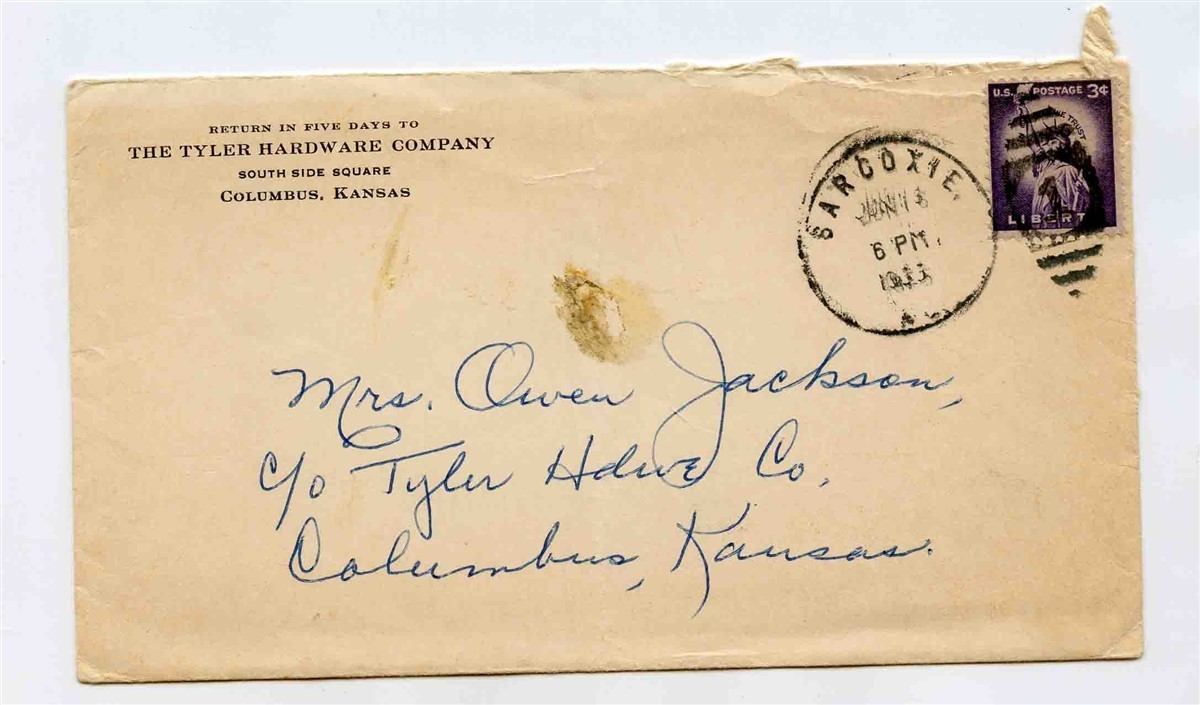 RETURN IN FIVE DAYS TO
THE TYLER HARDWARE COMPANY
SOUTH SIDE SQUARE
COLUMBUS, KANSAS
U.S. POSTAGE 3¢
TRUST
LIBERTY
SARCOXIE,
JUN
6 PM
Mrs. Owen Jackson,
c/o Tyler Hdwe Co.
Columbus, Kansas.